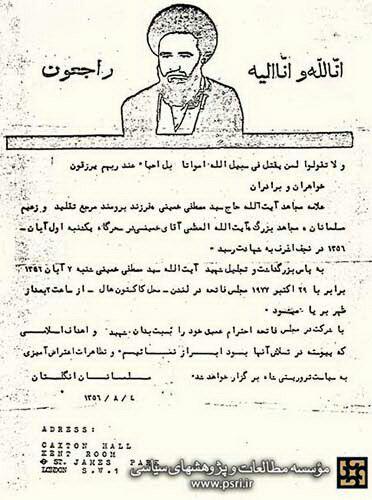 انّا لله و انّا اليه راجعون
و لا تقولوا لمن يقتل فى سبيل الله امواتا بل احياء عند ربهم يرزقون
خواهران و برادران
علامه مجاهد آيت‌الله حاج سيد مصطفى خمينى فرزند برومند مرجع تقليد و زعيم
مسلمانان مجاهد بزرگ آيت‌الله العظمى آقاى خمينى در سحرگاه يكشنبه اول آبان -
۱۳۵۶ در نجف اشرف به شهادت رسيد
به پاس بزرگداشت و تجليل شهيد آيت‌الله سيد مصطفى خمينى شنبه ۷ آبان ۱۳۵۶
برابر با ۲۹ اكتبر ۱۹۷۷ مجلس فاتحه در لندن - محل كاكستون هال - از ساعت
ظهر بر پا ميشود
با شركت در مجلس فاتحه احترام عميق خود را نسبت بدان شهيد و اهداف اسلامى
كه پيوسته در تلاش آنها بود ابراز نمائيم و تظاهرات اعتراض آميزى
به سياست تروريستى شاه بر گزار خواهد شد
مسلمانان انگلستان
۱۳۵۶ / ۸ / ٤
ADRESS:
CAXTON HALL
KENT ROOM
ST. JAMES PARK
LONDON S.W.1
مؤسسه مطالعات و پژوهشهاى سياسى
www.psri.ir